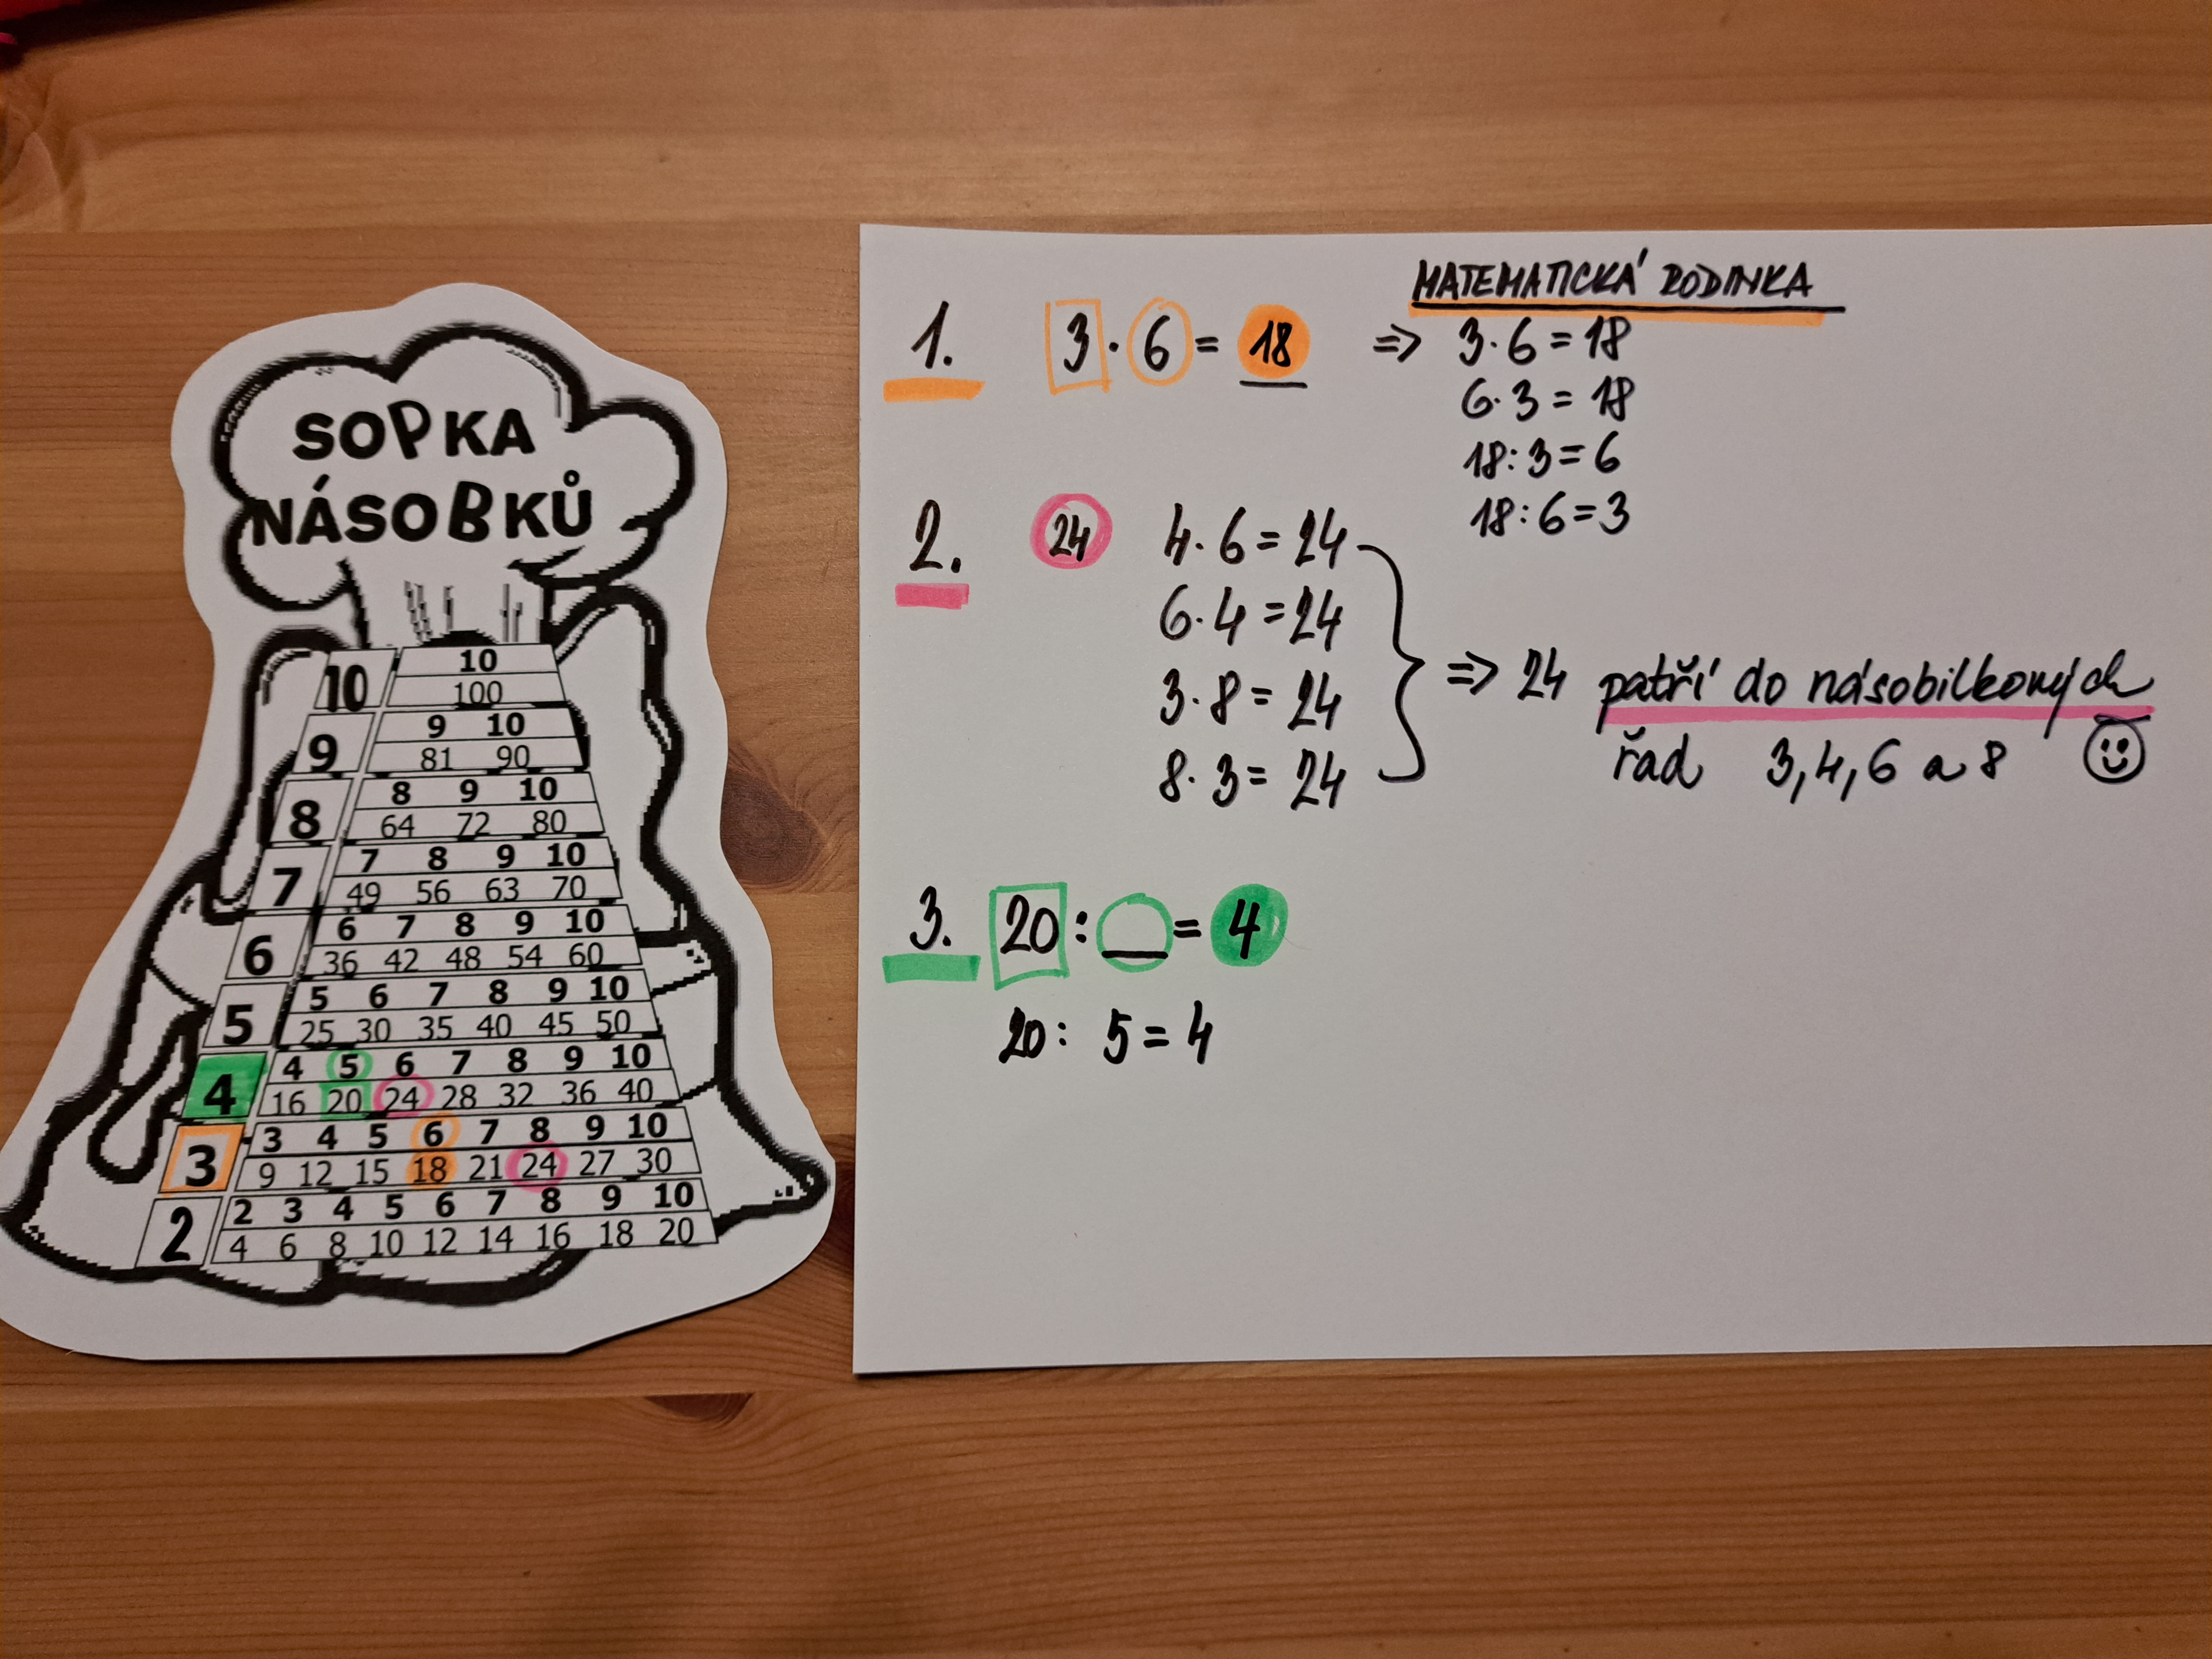 SOPKA
NÁSOBKŮ
10 10
100
9 9 10
81 90
8 8 9 10
64 72 80
7 7 8 9 10
49 56 63 70
6 6 7 8 9 10
36 42 48 54 60
5 5 6 7 8 9 10
25 30 35 40 45 50
4 4 5 6 7 8 9 10
16 20 24 28 32 36 40
3 3 4 5 6 7 8 9 10
9 12 15 18 21 24 27 30
2 2 3 4 5 6 7 8 9 10
4 6 8 10 12 14 16 18 20
1. 3 · 6 = 18 =>
MATEMATICKÁ RODINKA
3 · 6 = 18
6 · 3 = 18
18 : 3 = 6
18 : 6 = 3
2. 24 4 · 6 = 24
6 · 4 = 24
3 · 8 = 24
8 · 3 = 24
=> 24 patří do násobilkových
řad 3, 4, 6 a 8
3. 20 : __ = 4
20 : 5 = 4